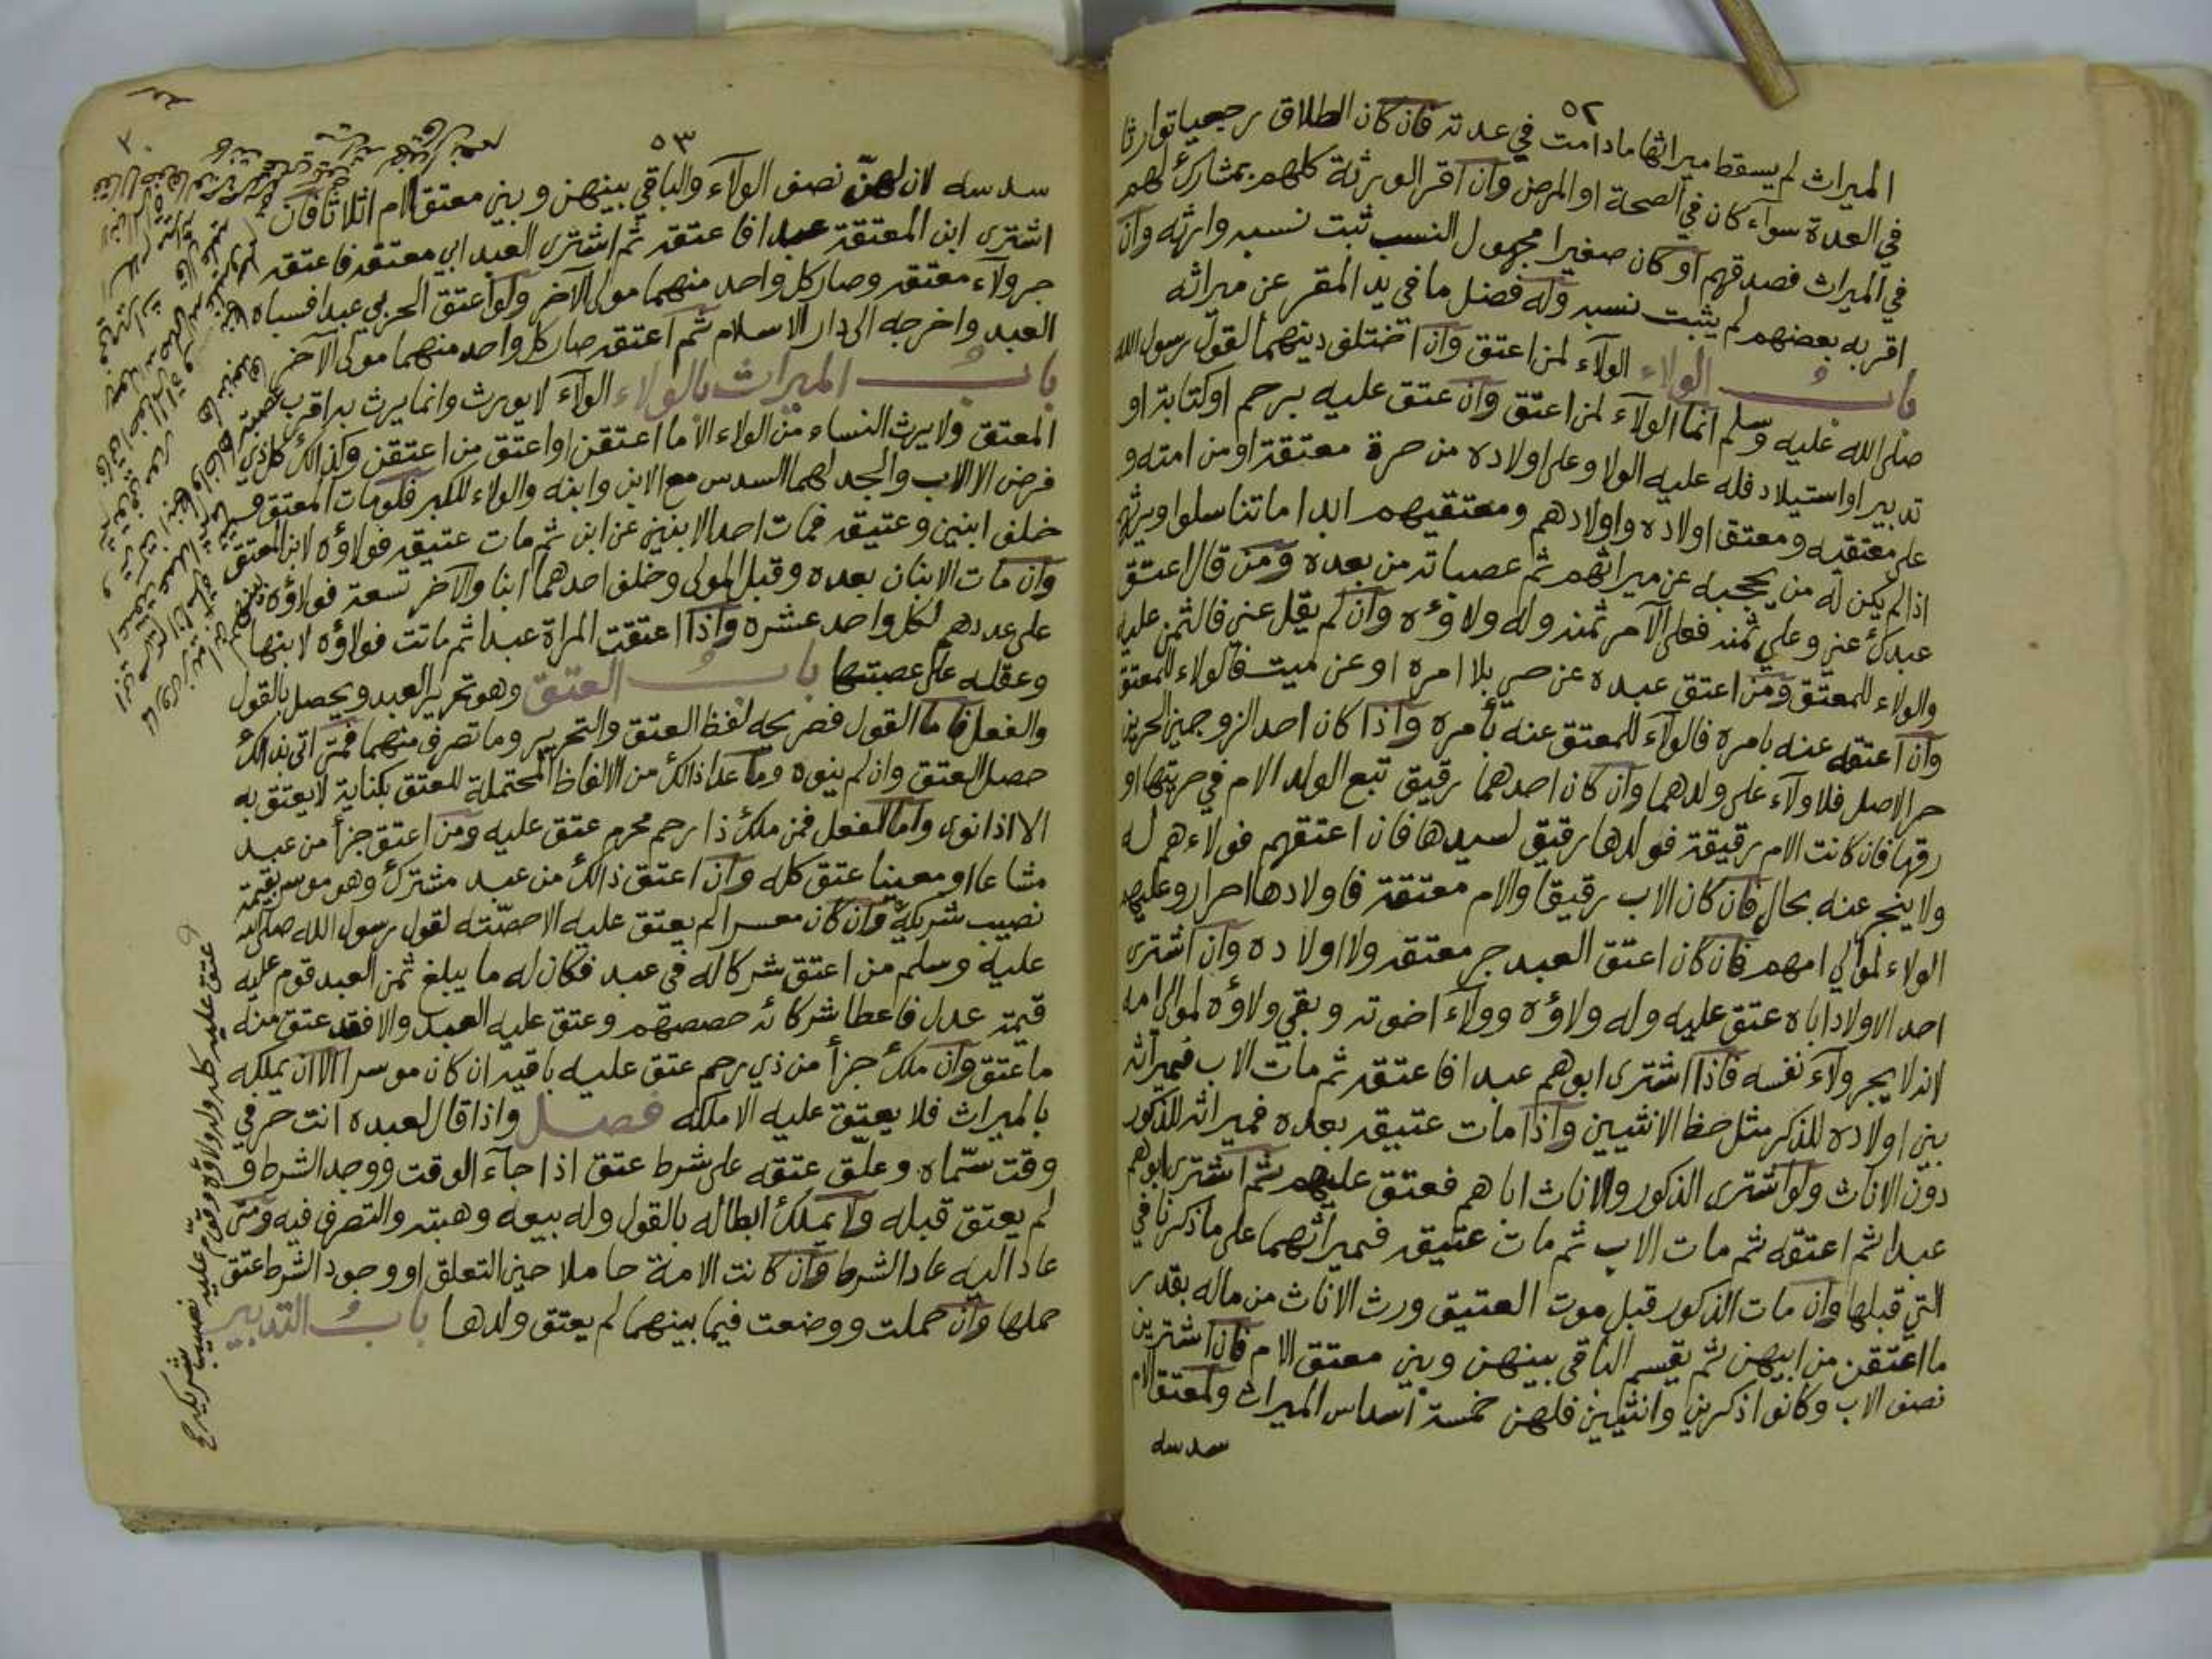 ٥٢
الميراث لم يسقط ميراثها مادامت في عدته فان كان الطلاق رجعيا توارثا
في العدة سواء كان في الصحة او المرض وان اقر الورثة كلهم بمشارك لهم
في الميراث فصدقهم او كان صغيرا مجهول النسب ثبت نسبه وارثه وان
اقر به بعضهم لم يثبت نسبه وله فضل ما في يد المقر عن ميراثه
باب الولاء الولاء لمن اعتق وان اختلف دينهما لقول رسول الله
صلى الله عليه وسلم انما الولاء لمن اعتق وان عتق عليه برحم او كتابة او
تدبير او استيلاد فله عليه الولا وعلى اولاده من حرة معتقة او من امته و
على معتقيه ومعتق اولاده واولادهم ومعتقيهم ابدا ما تناسلوا ويرثهم
اذا لم يكن له من يحجبه عن ميراثهم ثم عصباته من بعده ومن قال اعتق
عبدك عني وعلي ثمنه فعلى الآمر ثمنه وله ولاؤه وان لم يقل عني فالثمن عليه
والولاء للمعتق ومن اعتق عبده عن حي بلا امره او عن ميت فالولاء للمعتق
وان اعتقه عنه بامره فالولاء للمعتق عنه بأمره واذا كان احد الزوجين الحرين
حر الاصل فلا ولاء على ولدهما وان كان احدهما رقيق تبع الولد الام في حريتها او
رقها فان كانت الام رقيقة فولدها رقيق لسيدها فان اعتقهم فولاءهم له
ولا ينجر عنه بحال فان كان الاب رقيقا والام معتقة فاولادها احرار وعليهم
الولاء لموالي امهم فان كان اعتق العبد جر معتقه ولا اولاده وان اشترى
احد الاولاد اباه عتق عليه وله ولاؤه وولاء اخوته وبقي ولاؤه لموالي امه
لانه لا يجر ولاء نفسه فاذا اشترى ابوهم عبدا فاعتقه ثم مات الاب فميراثه
بين اولاده للذكر مثل حظ الانثيين واذا مات عتيقه بعده فميراثه للذكور
دون الاناث ولو اشترى الذكور والاناث اباهم فعتق عليهم ثم اشترى ابوهم
عبدا ثم اعتقه ثم مات الاب ثم مات عتيقه فميراثهما على ما ذكرنا في
التي قبلها وان مات الذكور قبل موت العتيق ورث الاناث من ماله بقدر
ما اعتقن من ابيهن ثم يقسم الباقي بينهن وبين معتق الام فان اشترين
نصف الاب وكانوا ذكرين وانثيين فلهن خمسة اسداس الميراث ولمعتق الام
سدسه
٥٣
سدسه لان لهن نصف الولاء والباقي بينهن وبين معتق الام اثلاثا فان
اشترى ابن المعتقة عبدا فاعتقه ثم اشترى العبد ابي معتقه فاعتقه
جر ولاء معتقه وصار كل واحد منهما مولى الآخر ولو اعتق الحربي عبدا فسباه
العبد واخرجه الى دار الاسلام ثم اعتقه صار كل واحد منهما مولى الآخر
باب الميراث بالولاء الولاء لا يورث وانما يرث به اقرب عصبة
المعتق ولا يرث النساء من الولاء الا ما اعتقن او اعتق من اعتقن وكذالك كل ذي
فرض الا الاب والجد لهما السدس مع الابن وابنه والولاء للكبر فلو مات المعتق و
خلف ابنين وعتيقه فمات احد الابنين عن ابن ثم مات عتيقه فولاؤه لابن المعتق
وان مات الابنان بعده وقبل المولى وخلف احدهما ابنا والآخر تسعة فولاؤه بينهم
على عددهم لكل واحد عشره واذا اعتقت المراة عبدا ثم ماتت فولاؤه لابنها
وعقله على عصبتها باب العتق وهو تحرير العبد ويحصل بالقول
والفعل فاما القول فصريحه لفظ العتق والتحرير وما تصرف منهما فمتى اتى بذالك
حصل العتق وان لم ينوه وما عدا ذالك من الالفاظ المحتملة للعتق بكناية لا يعتق به
الا اذا نوى واما الفعل فمن ملك ذا رحم محرم عتق عليه ومن اعتق جزأ من عبد
مشاعا او معينا عتق كله وان اعتق ذالك من عبد مشترك وهو موسر بقيمة
نصيب شريكه وان كان معسرا لم يعتق عليه الا حصته لقول رسول الله صلى الله
عليه وسلم من اعتق شركا له في عبد فكان له ما يبلغ ثمن العبد قوم عليه
قيمة عدل فاعطا شركائه حصصهم وعتق عليه العبد والا فقد عتق منه
ما عتق وان ملك جزأ من ذي رحم عتق عليه باقيه ان كان موسرا الا ان يملكه
بالميراث فلا يعتق عليه الا ملكه فصل واذا قال لعبده انت حر في
وقت سماه وعلق عتقه على شرط عتق اذا جاء الوقت ووجد الشرط و
لم يعتق قبله ولا يملك ابطاله بالقول وله بيعه وهبته والتصرف فيه ومتى
عاد اليه عاد الشرط وان كانت الامة حاملا حين التعلق او وجود الشرط عتق
حملها وان حملت ووضعت فيما بينهما لم يعتق ولدها باب التدبير
عتق عليه كله وله ولاؤه وقوم عليه نصيب شريكه